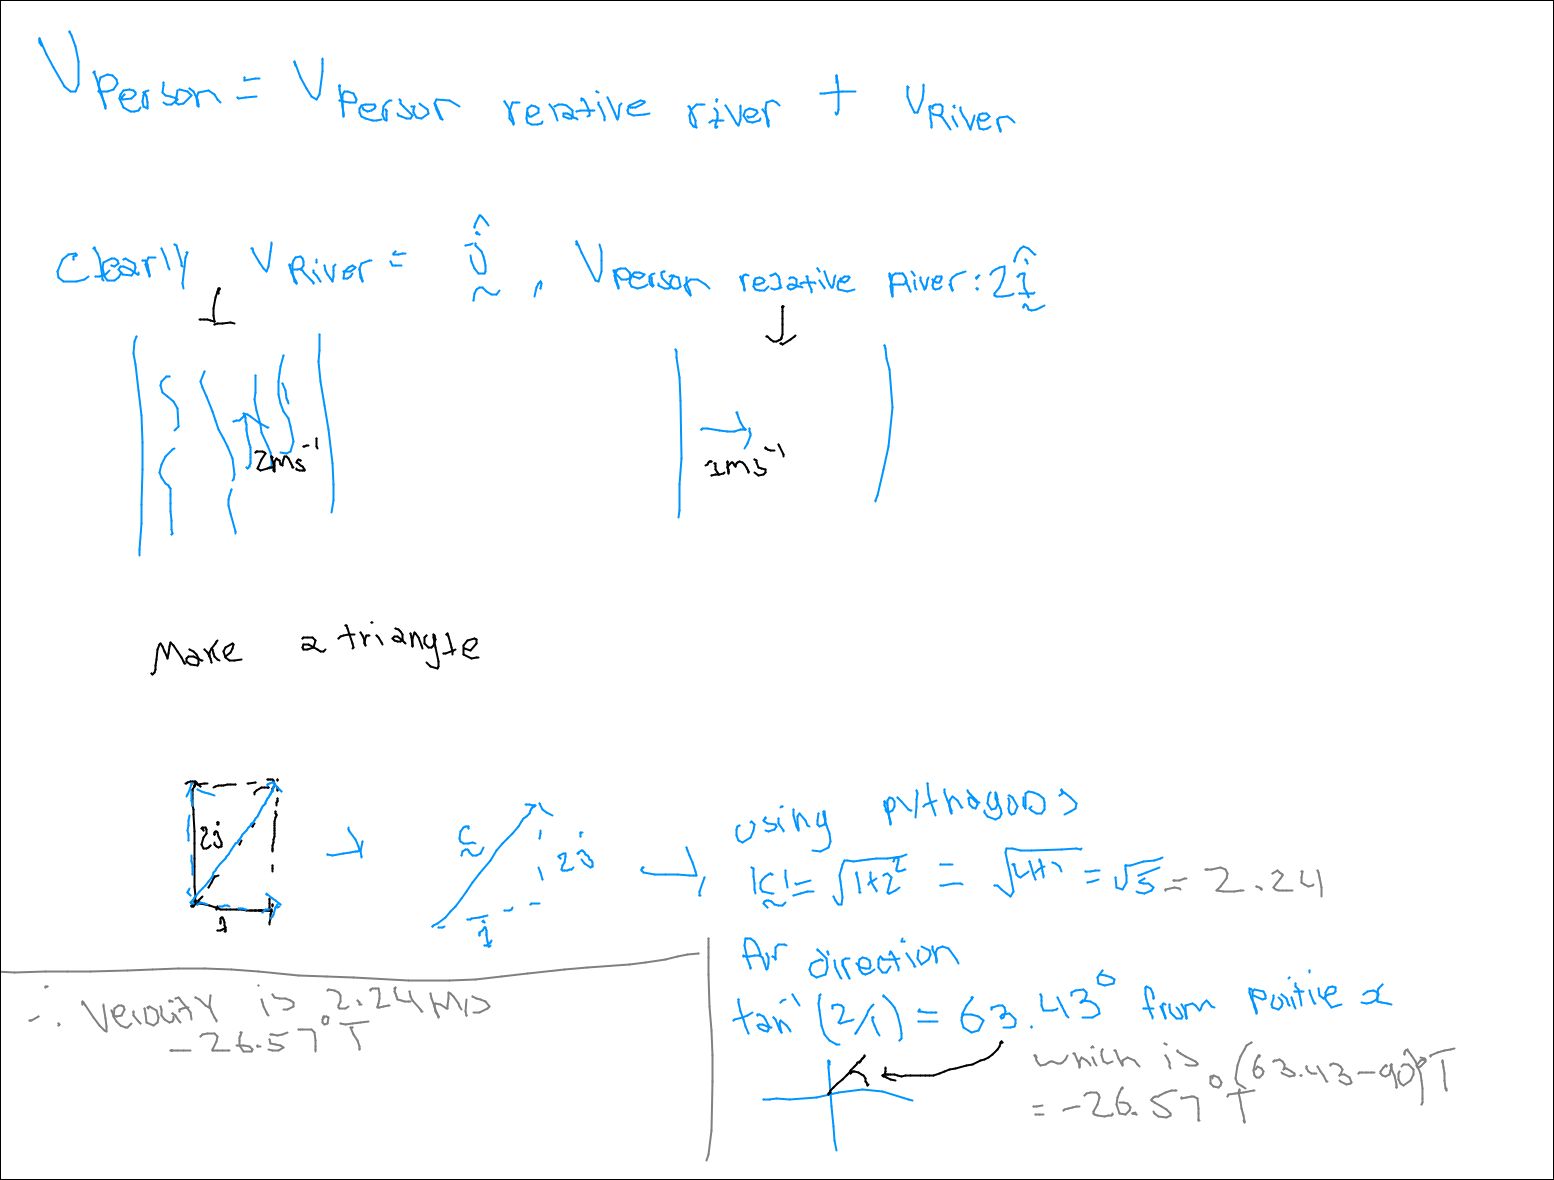 V Person = V Person relative river + V River
Clearly V River = ĵ , V Person relative River : 2î
2ms⁻¹
1ms⁻¹
Make a triangle
2j
1
c
2j
i
using pythagoras
|c| = √1+2² = √4+1 = √5 = 2.24
for direction
tan⁻¹ (2/1) = 63.43° from positive x
which is (63.43-90)°T
= -26.57°T
∴ Velocity is 2.24 m/s
-26.57°T